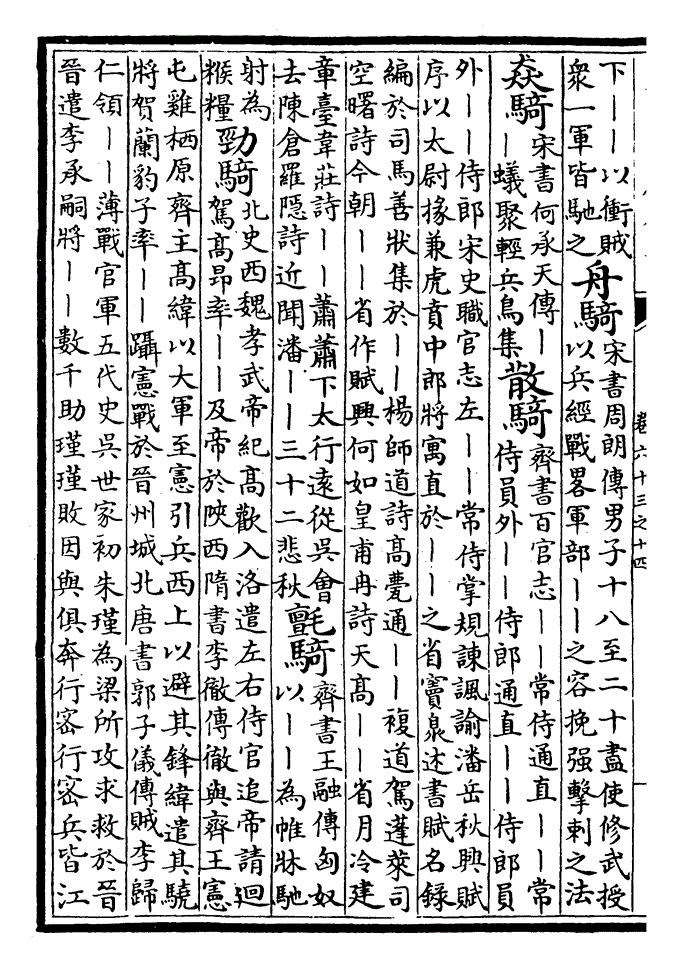 下——以衝賊
衆一軍皆馳之
舟騎
宋書周朗傳男子十八至二十盡使修武授
以兵經戰畧軍部——之容挽强擊刺之法
猋騎
宋書何承天傳—
—蟻聚輕兵鳥集
散騎
齊書百官志——常侍通直——常
侍員外——侍郎通直——侍郎員
外——侍郎宋史職官志左——常侍掌規諫諷諭潘岳秋興賦
序以太尉掾兼虎賁中郎將寓直於——之省竇泉述書賦名錄
編於司馬善狀集於——楊師道詩高甍通——複道駕蓬萊司
空曙詩今朝——省作賦興何如皇甫冉詩天高——省月冷建
章臺韋莊詩——蕭蕭下太行遠從吳會
去陳倉羅隱詩近聞潘——三十二悲秋
氈騎
齊書王融傳匈奴
以——為帷牀馳
射為
糇糧
勁騎
北史西魏孝武帝紀高歡入洛遣左右侍官追帝請迴
駕高昂率——及帝於陜西隋書李徹傳徹與齊王憲
屯雞栖原齊主高緯以大軍至憲引兵西上以避其鋒緯遣其驍
將賀蘭豹子率——躡憲戰於晉州城北唐書郭子儀傳賊李歸
仁領——薄戰官軍五代史吳世家初朱瑾為梁所攻求救於晉
晉遣李承嗣將——數千助瑾瑾敗因與俱奔行密行密兵皆江
卷六十三之十四